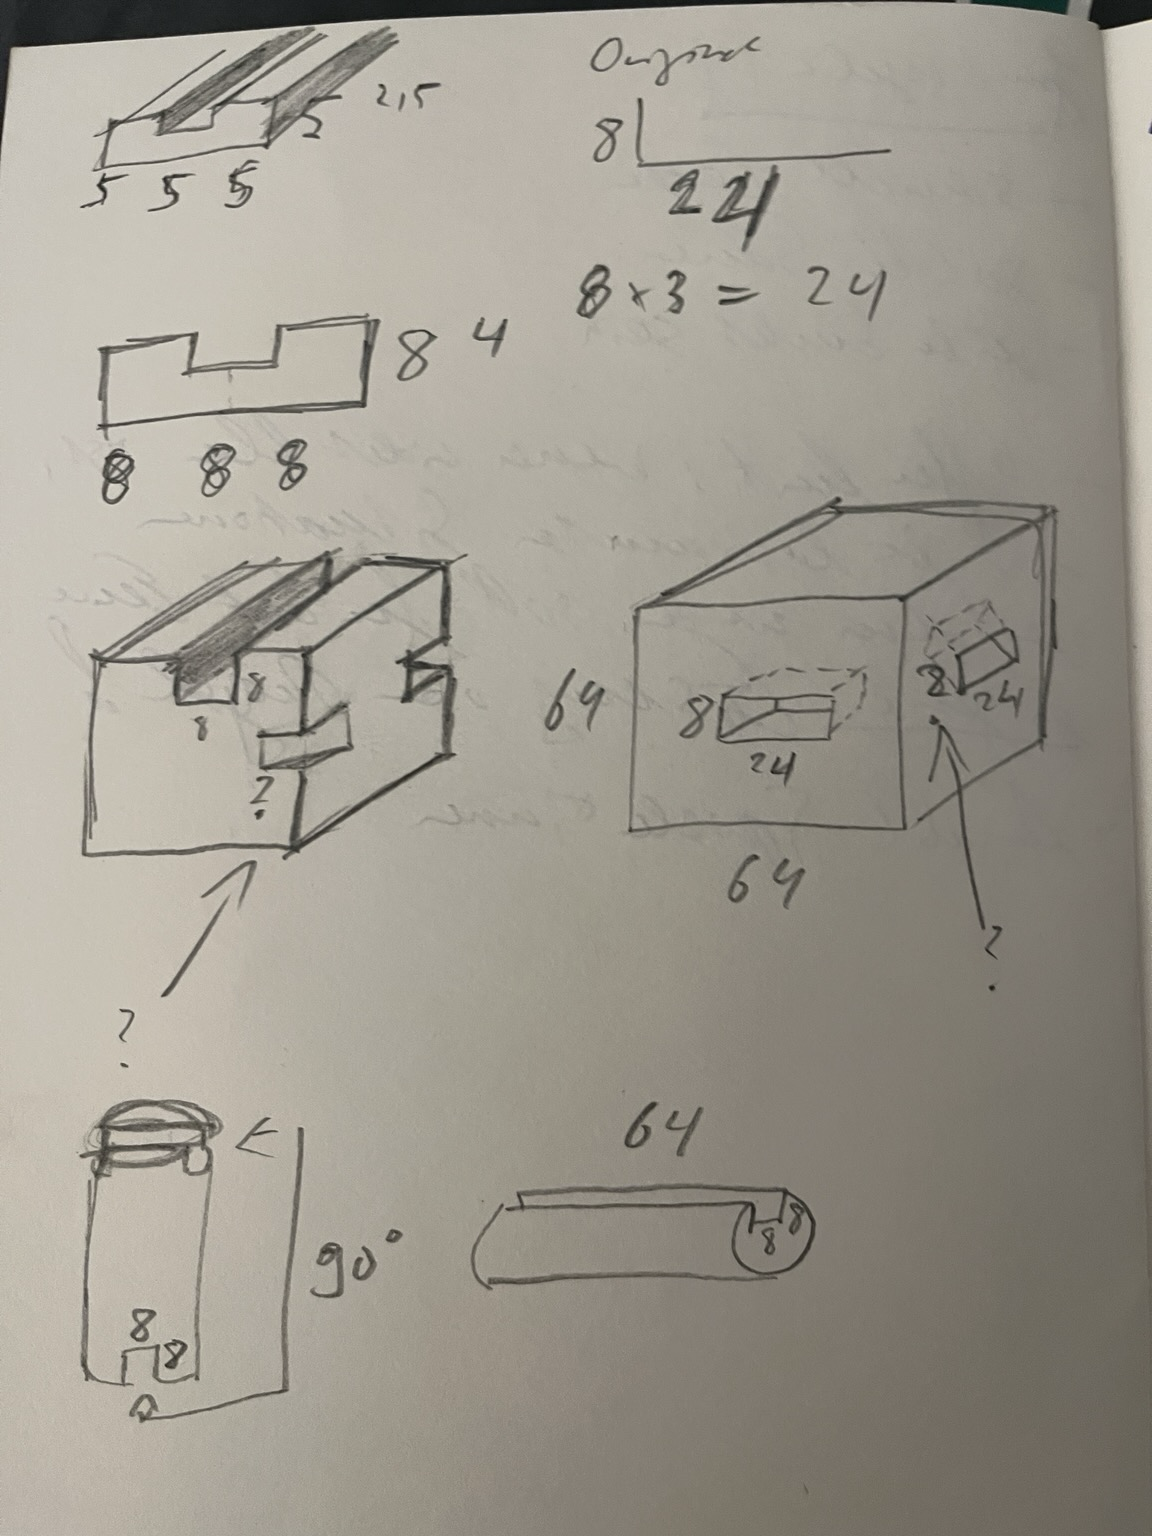 Original
2,5
5
5 5 5
8
24
8 x 3 = 24
8 4
8 8 8
8
8
?
64
8
24
8
24
64
?
?
64
90°
8
8
8
8